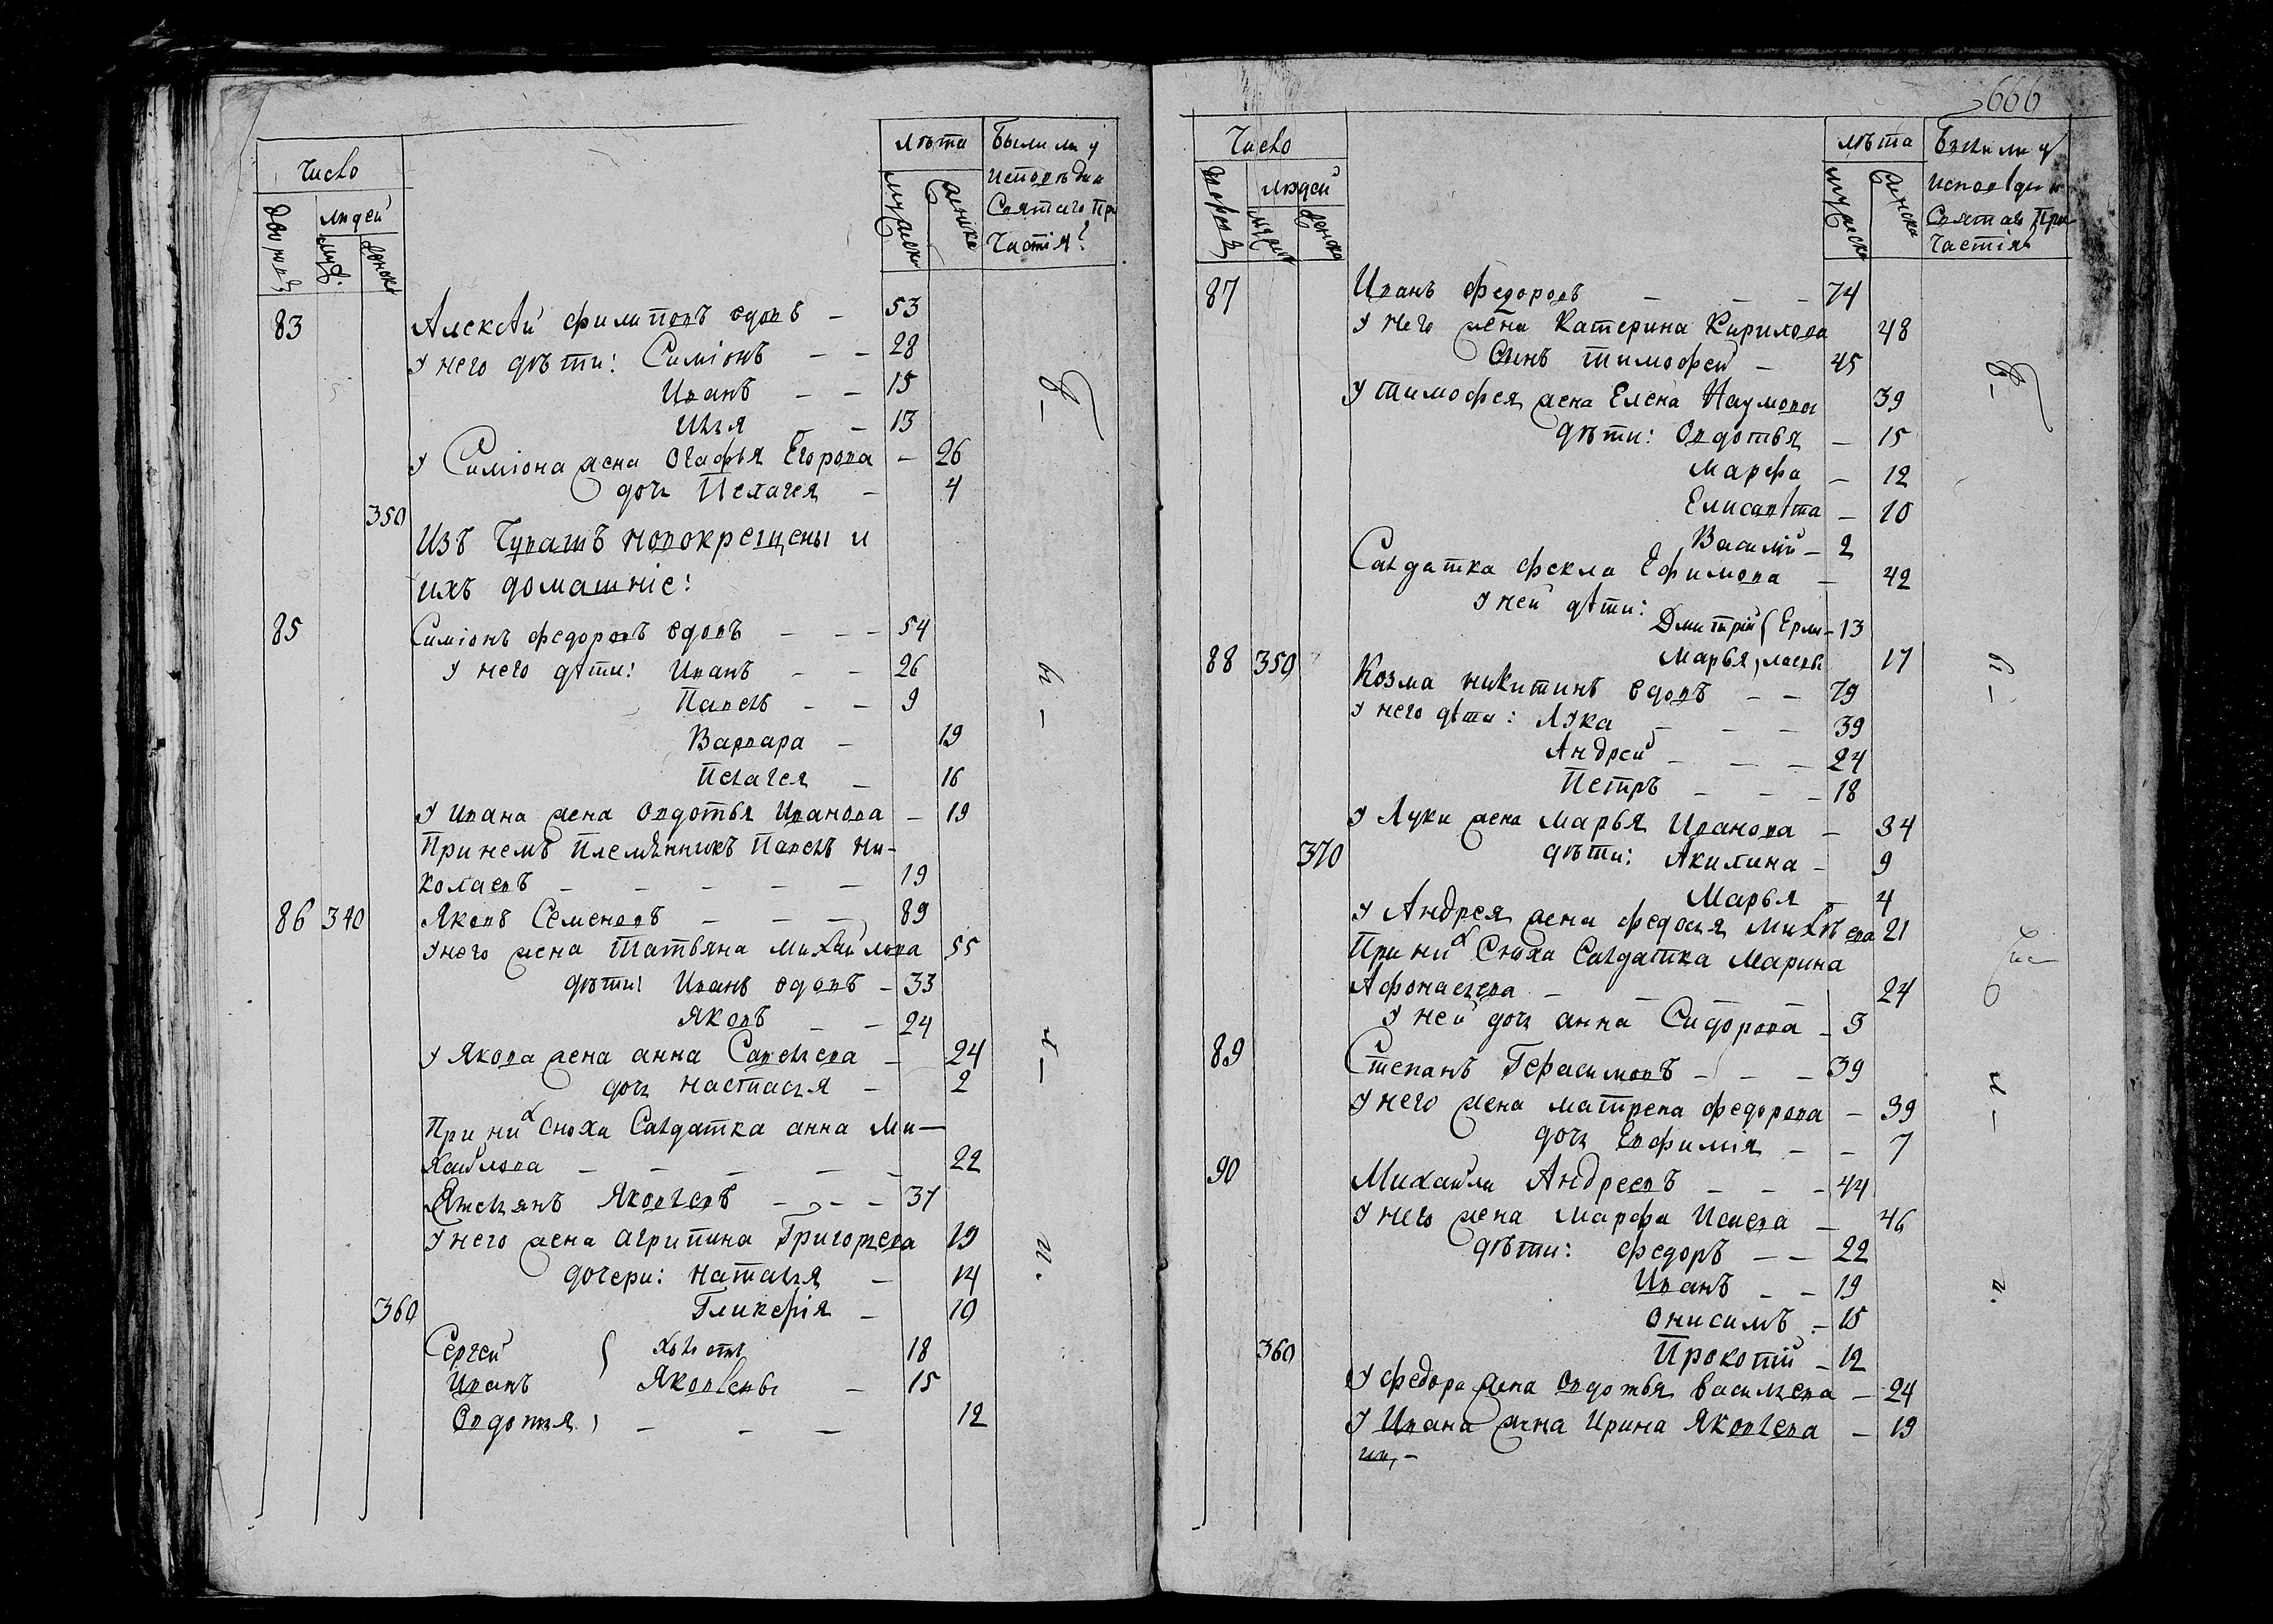 число
дворовъ
людей
муж.
женска
лѣта
мужска
женска
Были ли у
исповѣди и
Святаго При
частія?
83 Алексѣй филиповъ вдовъ – 53
у него дѣти: Симіонъ – – 28
Иванъ – – 15
Илья – – 13
у Симіона жена Огафья Егорова – 26
дочь Пелагея – 4
350
Изъ Чувашъ новокрещены и
ихъ домашніе:
85 Симіонъ федоровъ вдовъ – – – 54
у него дѣти: Иванъ – – 26
Павелъ – – 9
Варвара – 19
Пелагея – 16
у Ивана жена Овдотья Иванова – 19
При немъ Племянникъ Павелъ Ни–
колаевъ – – – – – 19
86 340 Яковъ Семеновъ – – – 89
у него жена Татьяна Михайлова 55
дѣти: Иванъ вдовъ – 33
Яковъ – – 24
у Якова жена анна Савельева – 24
дочь настасья – 2
При них сноха Салдатка анна Ми–
хайлова – – – – – 22
Емельянъ Яковлевъ – – – 37
У него жена агрипина Григорьева 19
дочери: наталья – 14
360 Гликерія – 10
Сергей 18
Иванъ Яковлевы – 15
Овдотья – – – 12
666
Число
дворовъ
людей
мужск
женска
лѣта
мужска
женска
Были ли у
исповѣди и
Святаго При
частія
87 Иванъ федоровъ – – – 74
у него жена Катерина Кирилова 48
Сынъ тимофей – 45
у тимофея жена Елена Наумова 39
дѣти: Овдотья – 15
Марфа – 12
Елисавѣта – 10
Василій – 2
Салдатка фекла Ефимова – 42
у ней дѣти:
Дмитрій Ерми– 13
Марья лаевы 17
88 350 Козма никитинъ вдовъ – – 79
у него дѣти: Лука – – – 39
Андрей – – – 24
Петръ – – – 18
у Луки жена Марья Иванова – 34
370 дѣти: Акилина – 9
Марья – 4
у Андрея жена федосья Михѣева 21
При них Сноха Салдатка Марина
Афонасьева – – – – 24
у ней дочь анна Сидорова – 3
89 Степанъ Герасимовъ – – – 39
у него жена матрена федорова – 39
дочь Евфимія – – 7
90 Михайла Андреевъ – – – 44
у него жена Марфа Исаева – 46
дѣти: федоръ – – 22
Иванъ – – 19
Онисимъ – 15
360 Прокопій – 12
у федора жена Овдотья васильева – 24
у Ивана жена Ирина Яковлева – 19